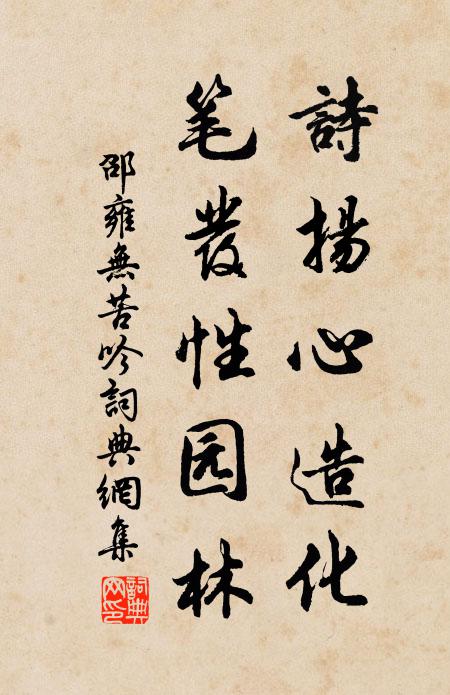 詩揚心造化
笔發性园林
邵雍無苦吟詞典網集
詞典网印